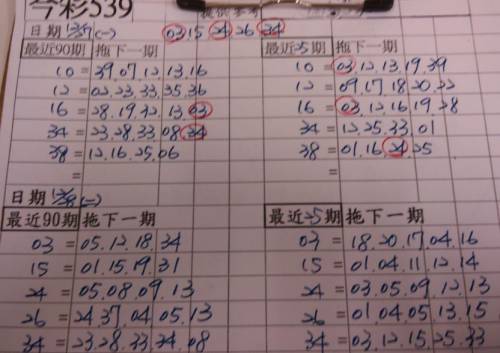 今彩539
日期 12/27(一) 03.15.24.26.34
最近90期 拖下一期 最近25期 拖下一期
10 = 39.07.12.13.16 10 = 03.12.13.19.39
12 = 02.23.33.35.36 12 = 09.17.18.20.22
16 = 28.19.32.13.03 16 = 03.12.16.19.28
34 = 23.28.33.08.34 34 = 12.25.33.01
38 = 12.16.25.06 38 = 01.16.24.25
= =
日期 12/28(二)
最近90期 拖下一期 最近25期 拖下一期
03 = 05.12.18.34 03 = 18.20.17.04.16
15 = 01.15.19.31 15 = 01.04.11.12.14
24 = 05.08.09.13 24 = 03.05.09.12.13
26 = 24.37.04.05.13 26 = 01.04.05.13.15
34 = 23.28.33.34.08 34 = 03.12.15.25.33